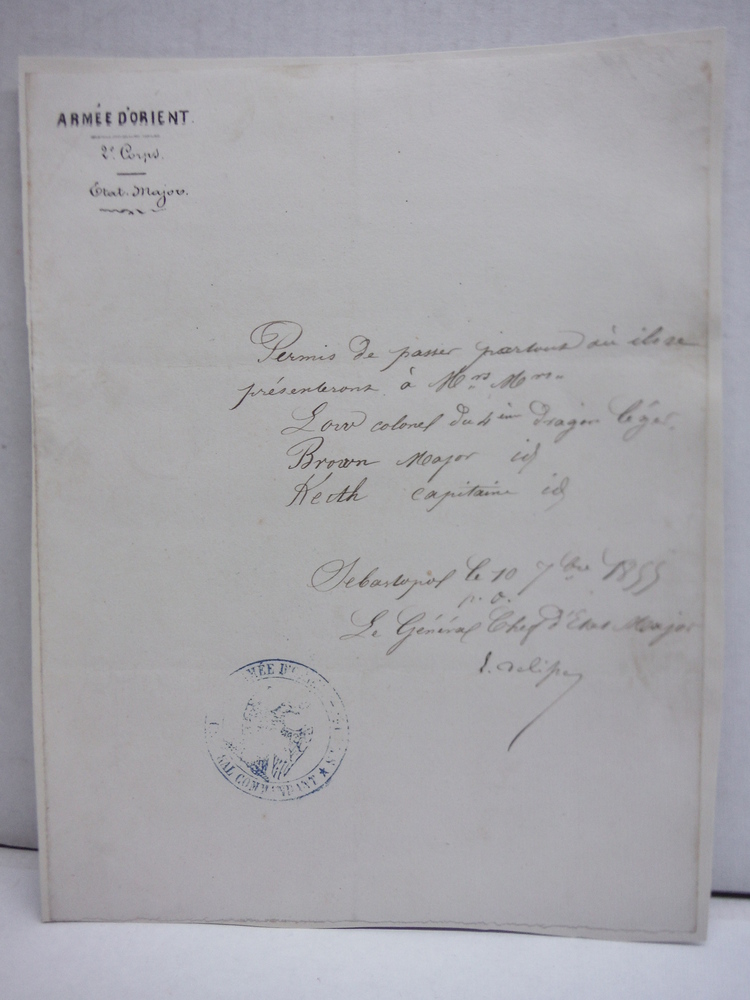 ARMÉE D'ORIENT.
2e. Corps.
État-Major.
Permis de passer partout où ils se
présenteront, à Mrs Mrs
Low colonel du 4ème Dragon léger.
Brown Major id
Keith capitaine id
Sebastopol le 10 7bre 1855
p. o.
Le Général Chef d'Etat Major
ARMÉE D'
GAL COMMANDANT ★